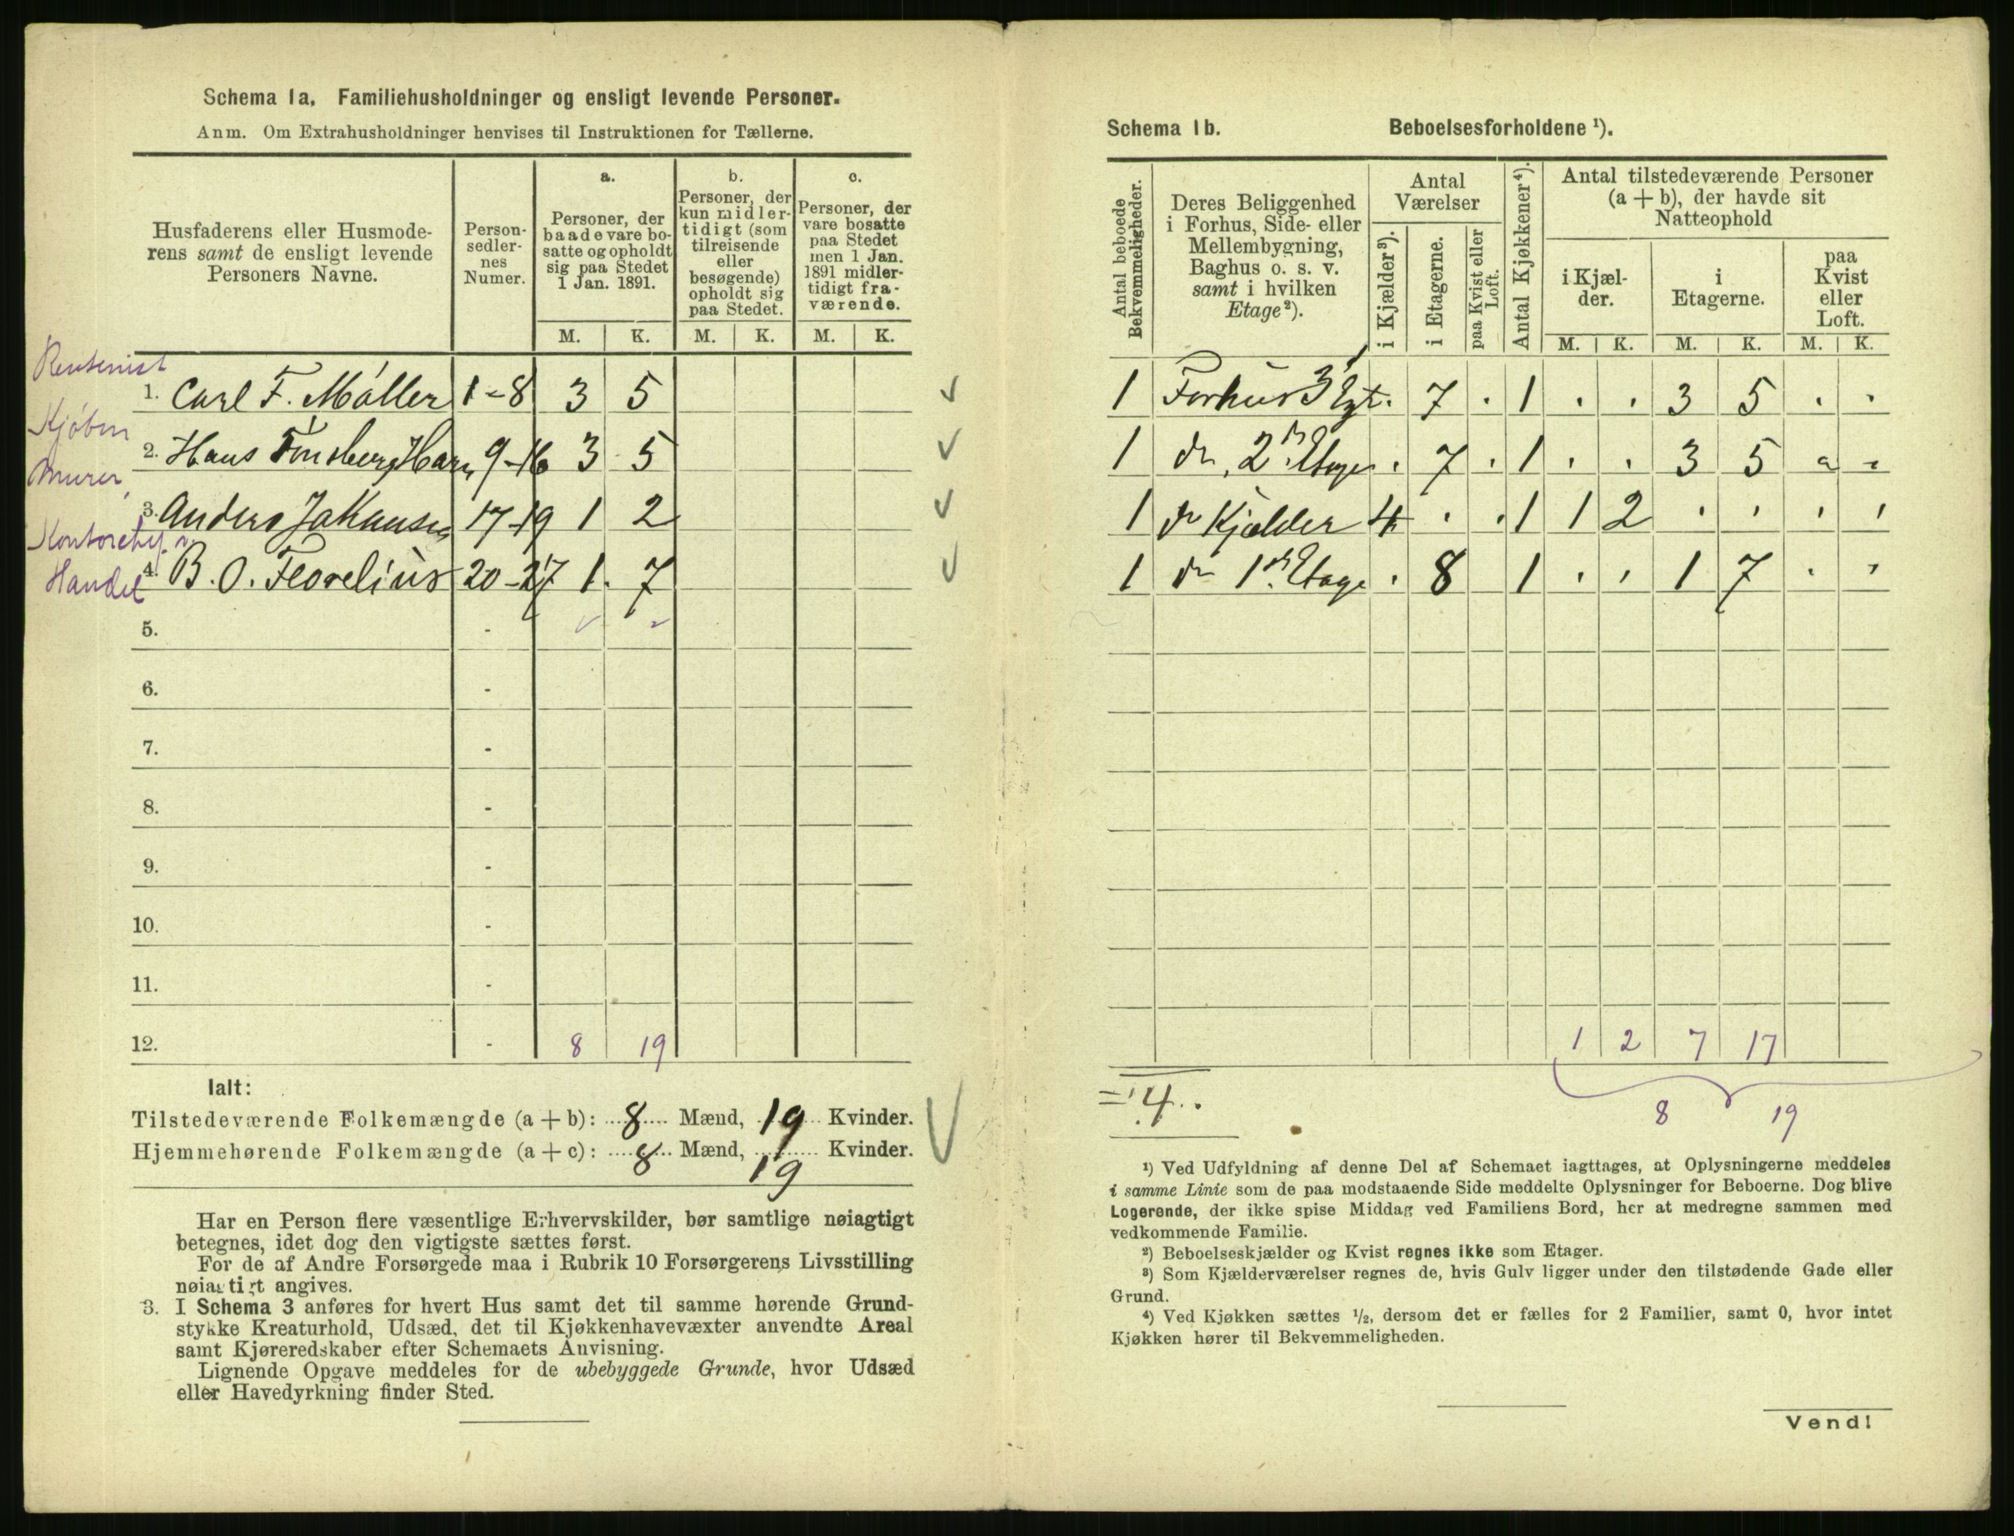 Schema 1a. Familiehusholdninger og ensligt levende Personer.
Anm. Om Extrahusholdninger henvises til Instruktionen for Tællerne.
Husfaderens eller Husmode-
rens samt de ensligt levende
Personers Navne.
Person-
sedler-
nes
Numer.
a.
Personer, der
baade vare bo-
satte og opholdt
sig paa Stedet
1 Jan. 1891.
b.
Personer, der
kun midler-
tidigt (som
tilreisende
eller
besøgende)
opholdt sig
paa Stedet.
c.
Personer, der
vare bosatte
paa Stedet
men 1 Jan.
1891 midler-
tidigt fra-
værende.
M. K. M. K. M. K.
Rentenist
1. Carl F. Møller 1-8 3 5
Kjøbm
2. Hans 9-16 3 5
Murer
3. Anders Johansen 17-19 1 2
4. B. O. Florelius 20-27 1. 7
Handel
5. -
6. -
7. -
8. -
9. -
10. -
11. -
12. - 8 19
Ialt:
Tilstedeværende Folkemængde (a + b): 8 Mænd, 19 Kvinder.
Hjemmehørende Folkemængde (a + c): 8 Mænd, 19 Kvinder.
Har en Person flere væsentlige Erhvervskilder, bør samtlige nøiagtigt
betegnes, idet dog den vigtigste sættes først.
For de af Andre Forsørgede maa i Rubrik 10 Forsørgerens Livsstilling
nøiagtigt angives.
3. I Schema 3 anføres for hvert Hus samt det til samme hørende Grund-
stykke Kreaturhold, Udsæd, det til Kjøkkenhavevæxter anvendte Areal
samt Kjøreredskaber efter Schemaets Anvisning.
Lignende Opgave meddeles for de ubebyggede Grunde, hvor Udsæd
eller Havedyrkning finder Sted.
Schema 1b. Beboelsesforholdene ¹).
Antal beboede
Bekvemmeligheder.
Deres Beliggenhed
i Forhus, Side- eller
Mellembygning,
Baghus o. s. v.
samt i hvilken
Etage²).
Antal
Værelser
i Kjælder³).
i Etagerne.
paa Kvist eller
Loft.
Antal Kjøkkener⁴).
Antal tilstedeværende Personer
(a + b), der havde sit
Natteophold
i Kjæl-
der.
i
Etagerne.
paa
Kvist
eller
Loft.
M. K. M. K. M. K.
1 Forhus 3 Egt. . 7 . 1 . . 3 5 . .
1 do, 2. Etage . 7 . 1 . . 3 5 . .
1 do Kjælder 4 . . 1 1 2 . . . .
1 do 1. Etage . 8 1 . . 1 7 . .
1 2 7 17
= 4.
8 19
¹) Ved Udfyldning af denne Del af Schemaet iagttages, at Oplysningerne meddeles
i samme Linie som de paa modstaaende Side meddelte Oplysninger for Beboerne. Dog blive
Logerende, der ikke spise Middag ved Familiens Bord, her at medregne sammen med
vedkommende Familie.
²) Beboelseskjælder og Kvist regnes ikke som Etager.
³) Som Kjælderværelser regnes de, hvis Gulv ligger under den tilstødende Gade eller
Grund.
⁴) Ved Kjøkken sættes ½, dersom det er fælles for 2 Familier, samt 0, hvor intet
Kjøkken hører til Bekvemmeligheden.
Vend!